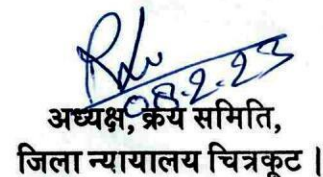 08.2.23
अध्यक्ष, क्रय समिति,
जिला न्यायालय चित्रकूट ।